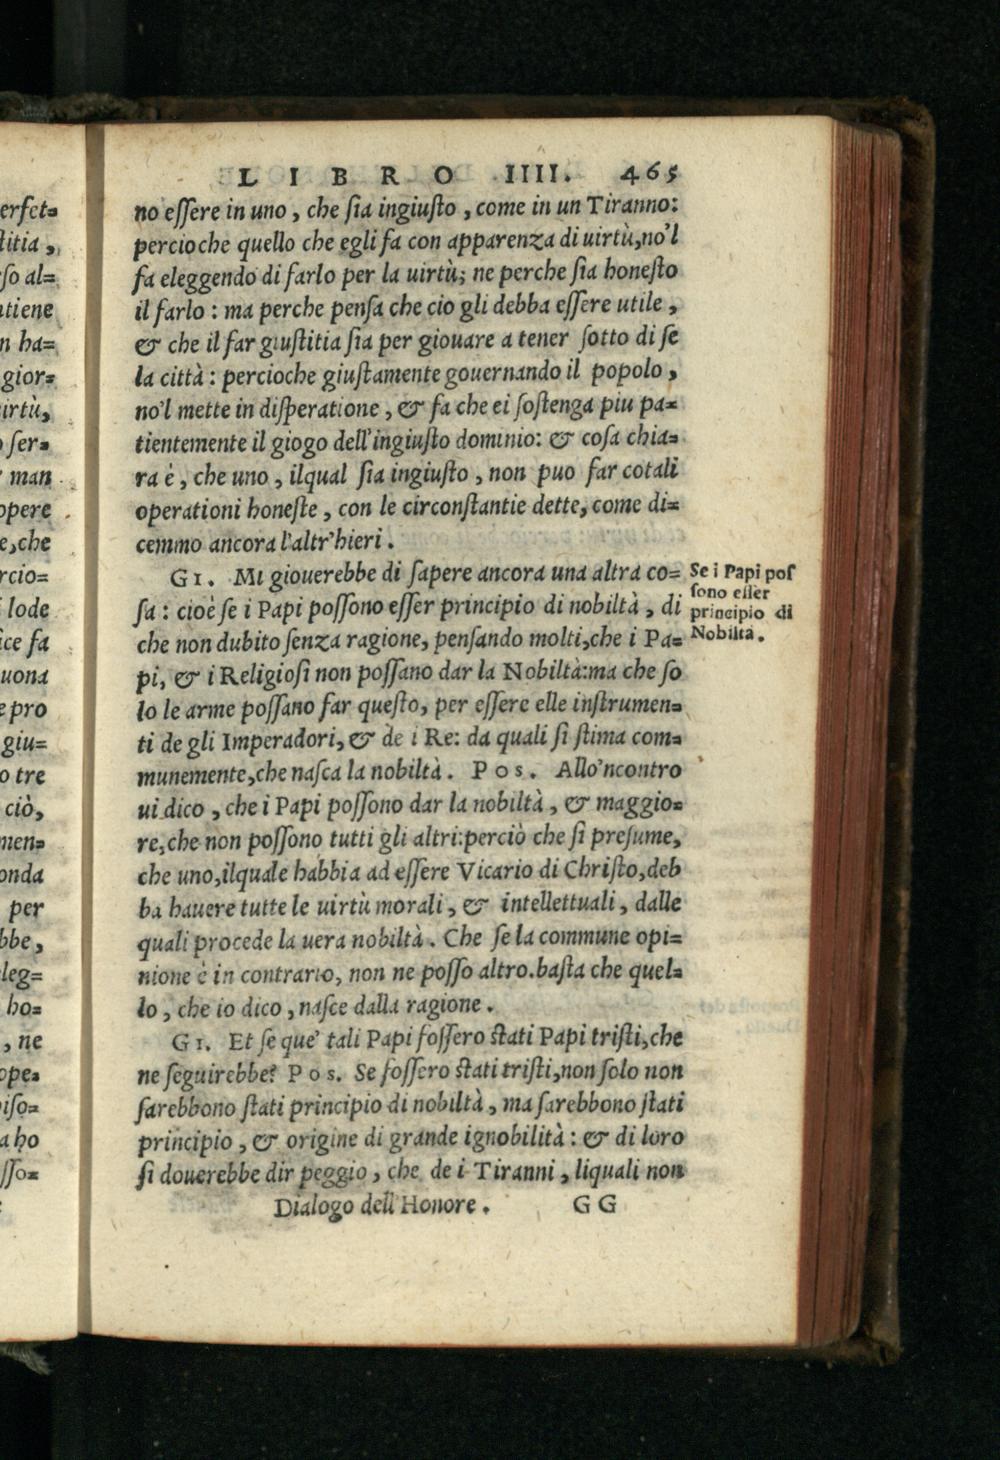 LIBRO IIII. 465
no eſſere in uno, che ſia ingiuſto, come in un Tiranno:
percioche quello che egli fa con apparenza di uirtù, no'l
fa eleggendo di farlo per la uirtù; ne perche ſia honeſto
il farlo: ma perche penſa che cio gli debba eſſere utile,
& che il far giuſtitia ſia per giouare a tener ſotto di ſe
la città: percioche giuſtamente gouernando il popolo,
no'l mette in diſperatione, & fa che ei ſoſtenga piu pa=
tientemente il giogo dell'ingiuſto dominio: & coſa chia=
ra è, che uno, ilqual ſia ingiuſto, non puo far cotali
operationi honeſte, con le circonſtantie dette, come di=
cemmo ancora l'altr'hieri.
GI. Mi giouerebbe di ſapere ancora una altra co=
ſa: cioè ſe i Papi poſſono eſſer principio di nobiltà, di
che non dubito ſenza ragione, penſando molti, che i Pa=
pi, & i Religioſi non poſſano dar la Nobiltà: ma che ſo
lo le arme poſſano far queſto, per eſſere elle inſtrumen=
ti de gli Imperadori, & de i Re: da quali ſi ſtima com=
munemente, che naſca la nobiltà. Pos. Allo'ncontro
ui dico, che i Papi poſſono dar la nobiltà, & maggio=
re, che non poſſono tutti gli altri: perciò che ſi preſume,
che uno, ilquale habbia ad eſſere Vicario di Chriſto, deb
ba hauere tutte le uirtù morali, & intellettuali, dalle
quali procede la uera nobiltà. Che ſe la commune opi=
nione è in contrario, non ne poſſo altro. baſta che quel=
lo, che io dico, naſce dalla ragione.
GI. Et ſe que' tali Papi foſſero ſtati Papi triſti, che
ne ſeguirebbe? Pos. Se foſſero ſtati triſti, non ſolo non
ſarebbono ſtati principio di nobiltà, ma ſarebbono ſtati
principio, & origine di grande ignobilità: & di loro
ſi douerebbe dir peggio, che de i Tiranni, liquali non
Dialogo dell'Honore. GG
Se i Papi poſ
ſono eſſer
principio di
Nobiltà.
erfet=
titia,
ſo al=
tiene
n ha=
gior=
irtù,
ſer=
man
opere
e, che
rcio=
lode
ice fa
uona
e pro
giu=
o tre
ciò,
men=
onda
per
bbe,
leg=
ho=
, ne
ope=
iſo=
a ho
ſſo=